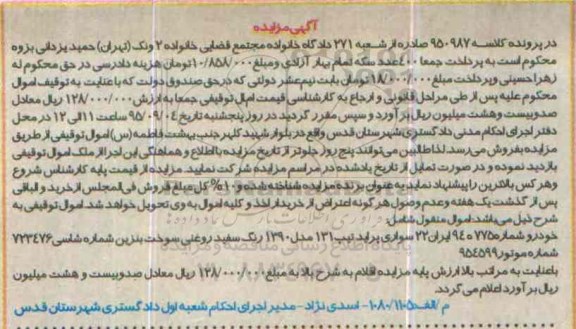 آگهی مزایده
در پرونده کلاسه ۹۵۰۹۸۷ صادره از شعبه ۲۷۱ دادگاه خانواده مجتمع قضایی خانواده ۲ ونک (تهران) حمید یزدانی بزوه
محکوم است به پرداخت جمعا ۴۰۰ عدد سکه تمام بهار آزادی و مبلغ ۱۰/۸۵۸/۰۰۰ تومان هزینه دادرسی در حق محکوم له
زهرا حسینی و پرداخت مبلغ ۱۸/۰۰۰/۰۰۰ تومان بابت نیم عشر دولتی که در حق صندوق دولت که با عنایت به توقیف اموال
محکوم علیه پس از طی مراحل قانونی و ارجاع به کارشناسی قیمت اموال توقیفی جمعا به ارزش ۱۲۸/۰۰۰/۰۰۰ ریال معادل
صد و بیست و هشت میلیون ریال بر آورد و سپس مقرر گردید در روز پنجشنبه تاریخ ۹۵/۰۹/۰۴ ساعت ۱۱ الی ۱۲ در محل
دفتر اجرای احکام مدنی دادگستری شهرستان قدس واقع در بلوار شهید کلهر جنب بهشت فاطمه (س) اموال توقیفی از طریق
مزایده بفروش می رسد. لذا طالبین می توانند پنج روز جلوتر از تاریخ مزایده با اطلاع و هماهنگی این اجرا از ملک اموال توقیفی
بازدید نموده و در صورت تمایل از تاریخ یاد شده در مراسم مزایده شرکت نمایید. مزایده از قیمت پایه کارشناس شروع
و هر کس بالاترین را پیشنهاد نماید به عنوان برنده مزایده شناخته شده و ۱۰% کل مبلغ فروش فی المجلس از خرید و الباقی
پس از گذشت یک هفته و عدم وصول هر گونه اعتراض از خریدار اخذ و کلیه اموال به وی تحویل خواهد شد. اموال توقیفی به
شرح ذیل می باشد: اموال منقول شامل:
خودرو شماره ۷۷۵ ه ۹۴ ایران ۲۲ سواری پراید تیپ ۱۳۱ مدل ۱۳۹۰ رنگ سفید روغنی سوخت بنزین شماره شاسی ۷۲۳۴۷۶
شماره موتور ۹۵۴۵۹۹
با عنایت به مراتب بالا ارزش پایه مزایده اقلام به شرح بالا به مبلغ ۱۲۸/۰۰۰/۰۰۰ ریال معادل صد و بیست و هشت میلیون
ریال بر آورد اعلام می گردد.
م/الف ۱۰۸۰/۱۱۰۵ - اسدی نژاد - مدیر اجرای احکام شعبه اول دادگستری شهرستان قدس